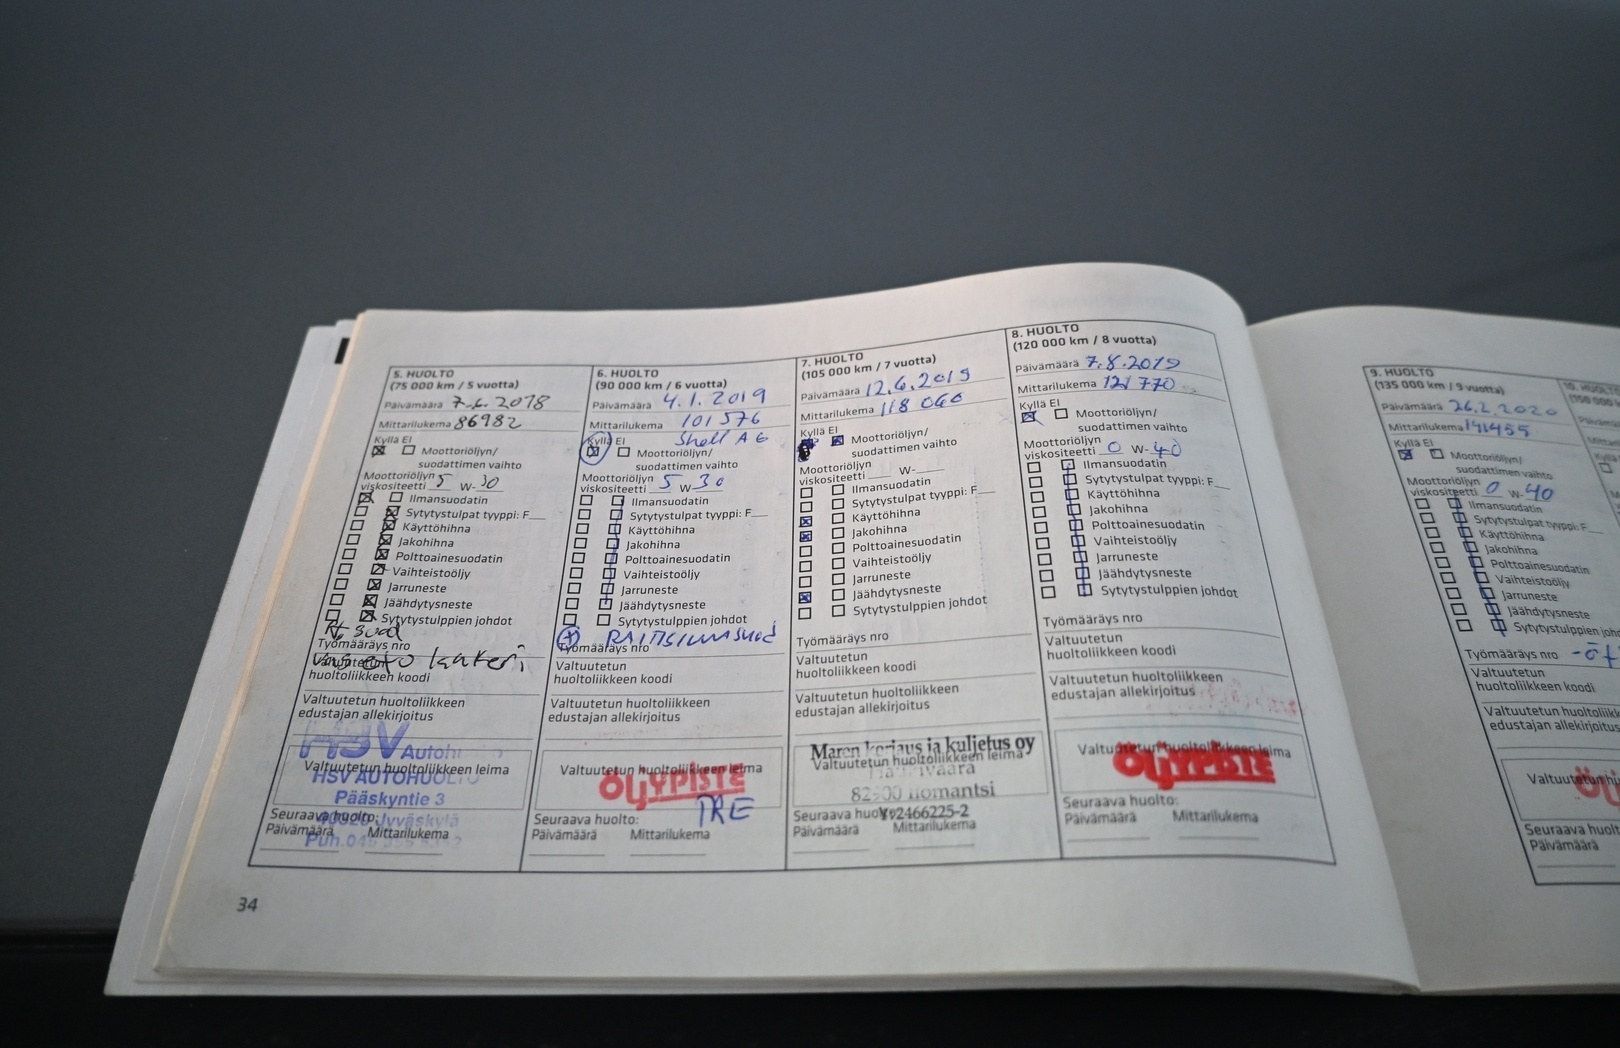 5. HUOLTO
(75 000 km / 5 vuotta)
Päivämäärä 7.6.2018
Mittarilukema 86982
Kyllä Ei
Moottoriöljyn/
suodattimen vaihto
Moottoriöljyn
viskositeetti 5 W-30
Ilmansuodatin
Sytytystulpat tyyppi: F
Käyttöhihna
Jakohihna
Polttoainesuodatin
Vaihteistoöljy
Jarruneste
Jäähdytysneste
Sytytystulppien johdot
Työmääräys nro
Valtuutetun
huoltoliikkeen koodi
Valtuutetun huoltoliikkeen
edustajan allekirjoitus
HSV Autohuolto
Valtuutetun huoltoliikkeen leima
HSV AUTOHUOLTO
Pääskyntie 3
Seuraava huolto:
Jyväskylä
Päivämäärä Mittarilukema
Puh.
6. HUOLTO
(90 000 km / 6 vuotta)
Päivämäärä 4.1.2019
Mittarilukema 101576
Kyllä Ei Shell
Moottoriöljyn/
suodattimen vaihto
Moottoriöljyn
viskositeetti 5 W 30
Ilmansuodatin
Sytytystulpat tyyppi: F
Käyttöhihna
Jakohihna
Polttoainesuodatin
Vaihteistoöljy
Jarruneste
Jäähdytysneste
Sytytystulppien johdot
+ RAITISILMASUOD
Työmääräys nro
Valtuutetun
huoltoliikkeen koodi
Valtuutetun huoltoliikkeen
edustajan allekirjoitus
Valtuutetun huoltoliikkeen leima
ÖLJYPISTE
TRE
Seuraava huolto:
Päivämäärä Mittarilukema
7. HUOLTO
(105 000 km / 7 vuotta)
Päivämäärä 12.6.2019
Mittarilukema 118 060
Kyllä Ei
Moottoriöljyn/
suodattimen vaihto
Moottoriöljyn
viskositeetti W-
Ilmansuodatin
Sytytystulpat tyyppi: F
Käyttöhihna
Jakohihna
Polttoainesuodatin
Vaihteistoöljy
Jarruneste
Jäähdytysneste
Sytytystulppien johdot
Työmääräys nro
Valtuutetun
huoltoliikkeen koodi
Valtuutetun huoltoliikkeen
edustajan allekirjoitus
Maren korjaus ja kuljetus oy
Valtuutetun huoltoliikkeen leima
82900 Ilomantsi
Seuraava huolto:
Y-2466225-2
Päivämäärä Mittarilukema
8. HUOLTO
(120 000 km / 8 vuotta)
Päivämäärä 7.8.2019
Mittarilukema 121770
Kyllä Ei
Moottoriöljyn/
suodattimen vaihto
Moottoriöljyn
viskositeetti 0 W-40
Ilmansuodatin
Sytytystulpat tyyppi: F
Käyttöhihna
Jakohihna
Polttoainesuodatin
Vaihteistoöljy
Jarruneste
Jäähdytysneste
Sytytystulppien johdot
Työmääräys nro
Valtuutetun
huoltoliikkeen koodi
Valtuutetun huoltoliikkeen
edustajan allekirjoitus
Valtuutetun huoltoliikkeen leima
ÖLJYPISTE
Seuraava huolto:
Päivämäärä Mittarilukema
34
9. HUOLTO
(135 000 km / 9 vuotta)
Päivämäärä 26.2.2020
Mittarilukema 141455
Kyllä Ei
Moottoriöljyn/
suodattimen vaihto
Moottoriöljyn
viskositeetti 0 W-40
Ilmansuodatin
Sytytystulpat tyyppi: F
Käyttöhihna
Jakohihna
Polttoainesuodatin
Vaihteistoöljy
Jarruneste
Jäähdytysneste
Sytytystulppien
Työmääräys nro
Valtuutetun
huoltoliikkeen koodi
Valtuutetun
edustajan allekirjoitus
Valtuutetun
Seuraava huolto:
Päivämäärä